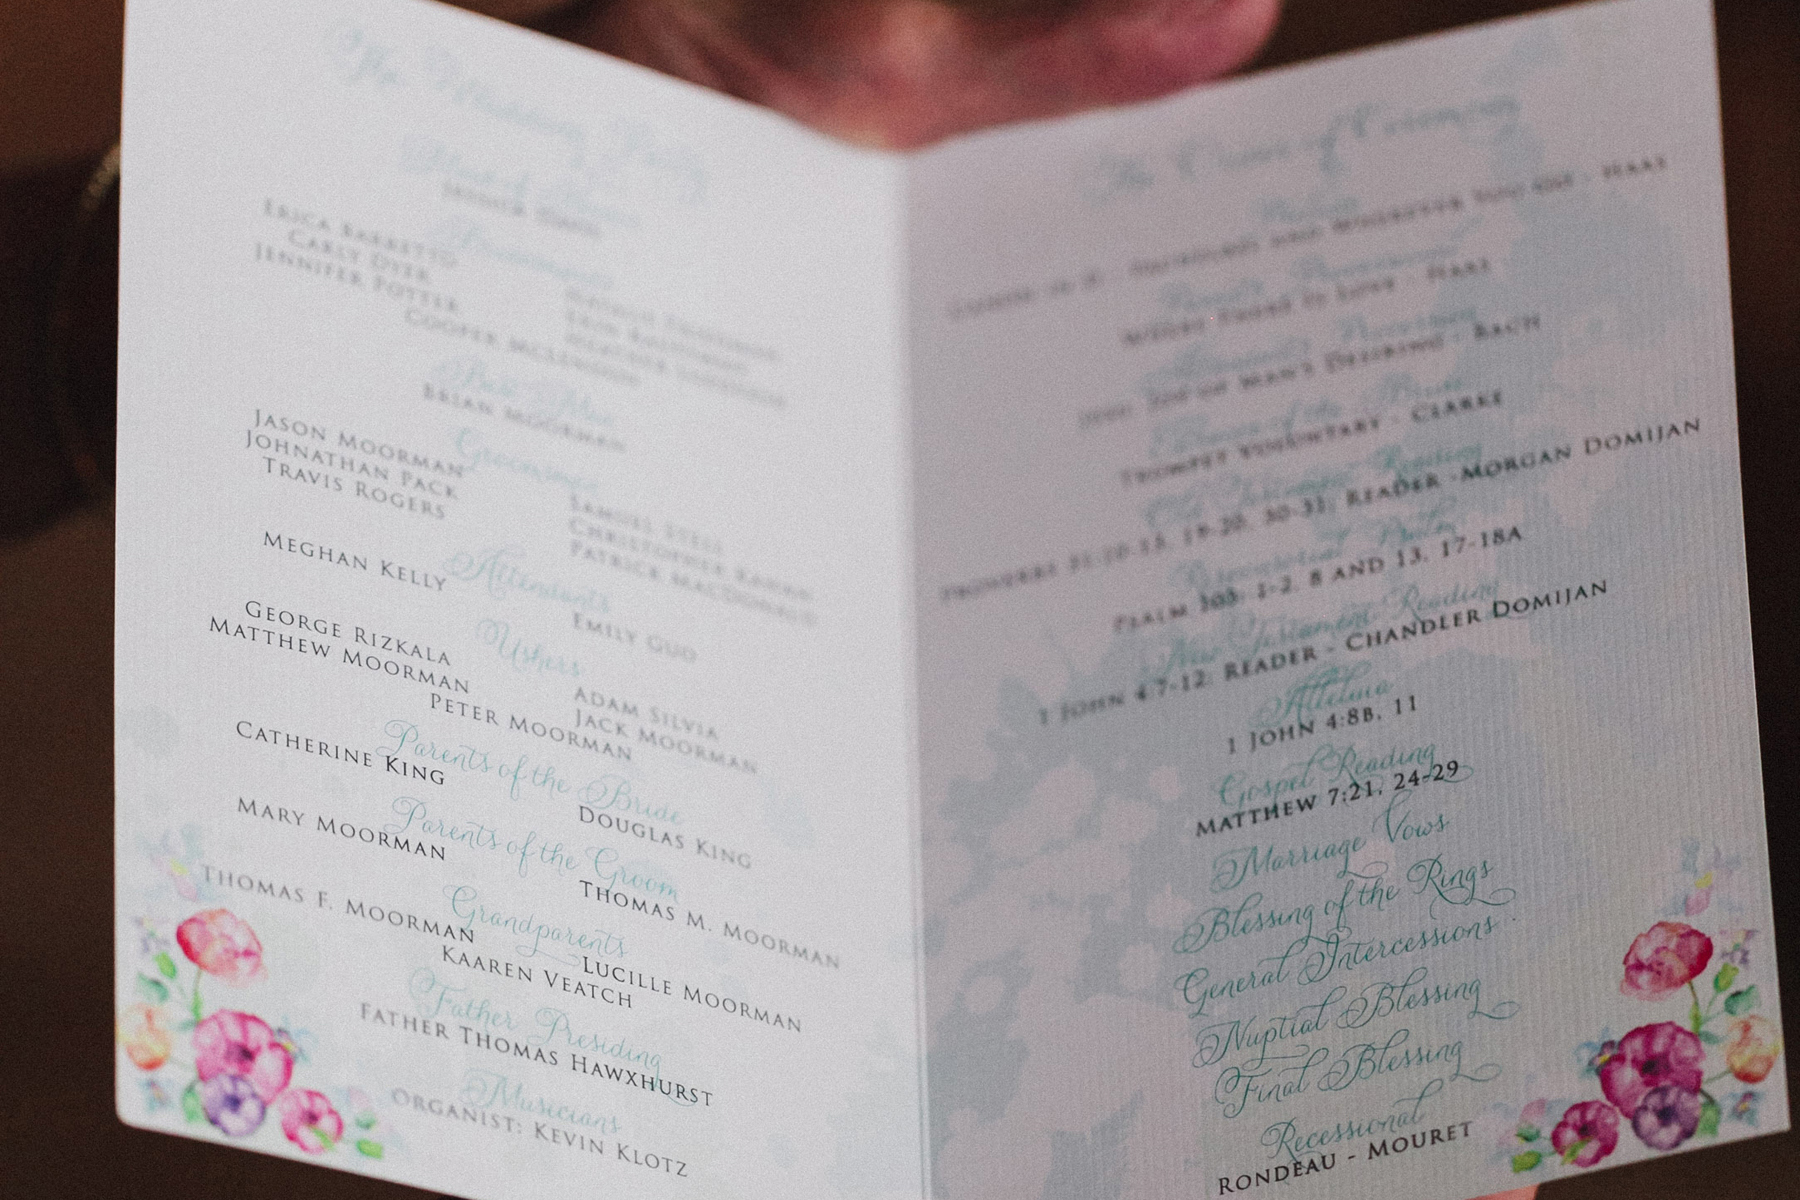 The Wedding Party
Erica Barretto
Carly Dyer
Jennifer Potter
Cooper
Best Man
Brian Moorman
Groomsmen
Jason Moorman
Johnathan Pack
Travis Rogers
Samuel
Christopher
Patrick MacDonald
Attendants
Meghan Kelly
Emily Guo
Ushers
George Rizkala
Matthew Moorman
Adam Silvia
Jack Moorman
Peter Moorman
Parents of the Bride
Catherine King
Douglas King
Parents of the Groom
Mary Moorman
Thomas M. Moorman
Grandparents
Thomas F. Moorman
Lucille Moorman
Kaaren Veatch
Father Presiding
Father Thomas Hawxhurst
Musicians
Organist: Kevin Klotz
The Order of Ceremony
- Haas
Where There Is Love - Haas
Jesu, Joy of Man's Desiring - Bach
Trumpet Voluntary - Clarke
Old Testament Reading
Proverbs 31:10-13, 19-20, 30-31; Reader -Morgan Domijan
Responsorial Psalm
Psalm 103: 1-2, 8 and 13, 17-18A
New Testament Reading
1 John 4:7-12; Reader - Chandler Domijan
Alleluia
1 John 4:8B, 11
Gospel Reading
Matthew 7:21, 24-29
Marriage Vows
Blessing of the Rings
General Intercessions
Nuptial Blessing
Final Blessing
Recessional
Rondeau - Mouret